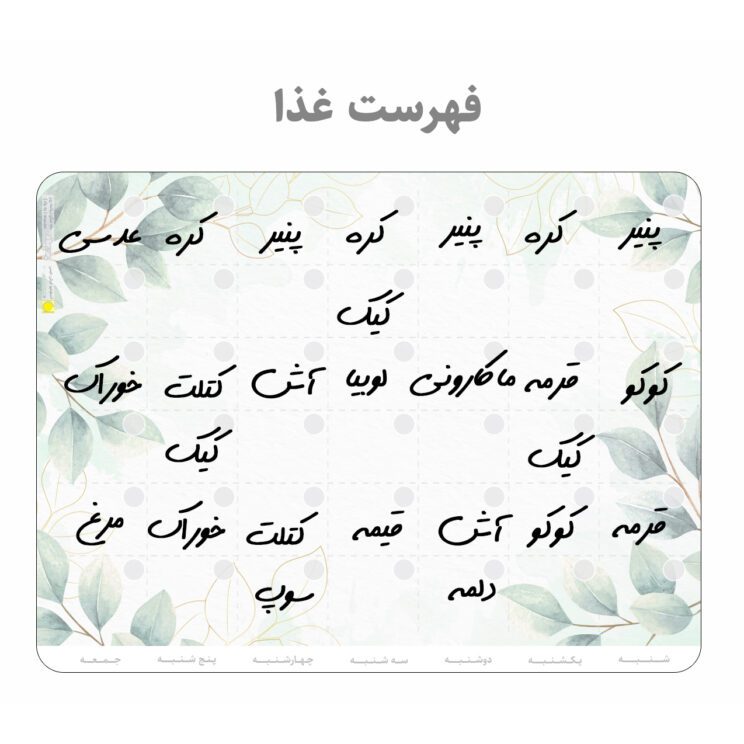 فهرست غذا
پنیر کره پنیر کره پنیر کره عدسی
کیک
کوکو قرمه ماکارونی لوبیا آش کتلت خوراک
کیک کیک
قرمه کوکو آش قیمه کتلت خوراک مرغ
دلمه سوپ
شنبه یکشنبه دوشنبه سه شنبه چهارشنبه پنج شنبه جمعه